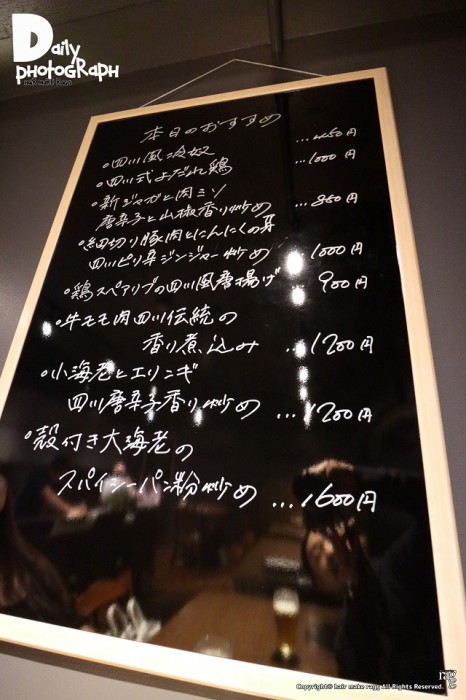 Daily
PHOTOGRAPH
hair make rags
本日のおすすめ
・四川風冷奴 ...450円
・四川式よだれ鶏 ...1000円
・新ジャガと肉ミソ
唐辛子と山椒香り炒め ...850円
・細切り豚肉とにんにくの芽
四川ピリ辛ジンジャー炒め 1000円
・鶏スペアリブの四川風唐揚げ 900円
・牛モモ肉四川伝統の
香り煮込み ...1200円
・小海老とエリンギ
四川唐辛子香り炒め ...1200円
・殻付き大海老の
スパイシーパン粉炒め ...1600円
Copyright© hair make rags All Rights Reserved.